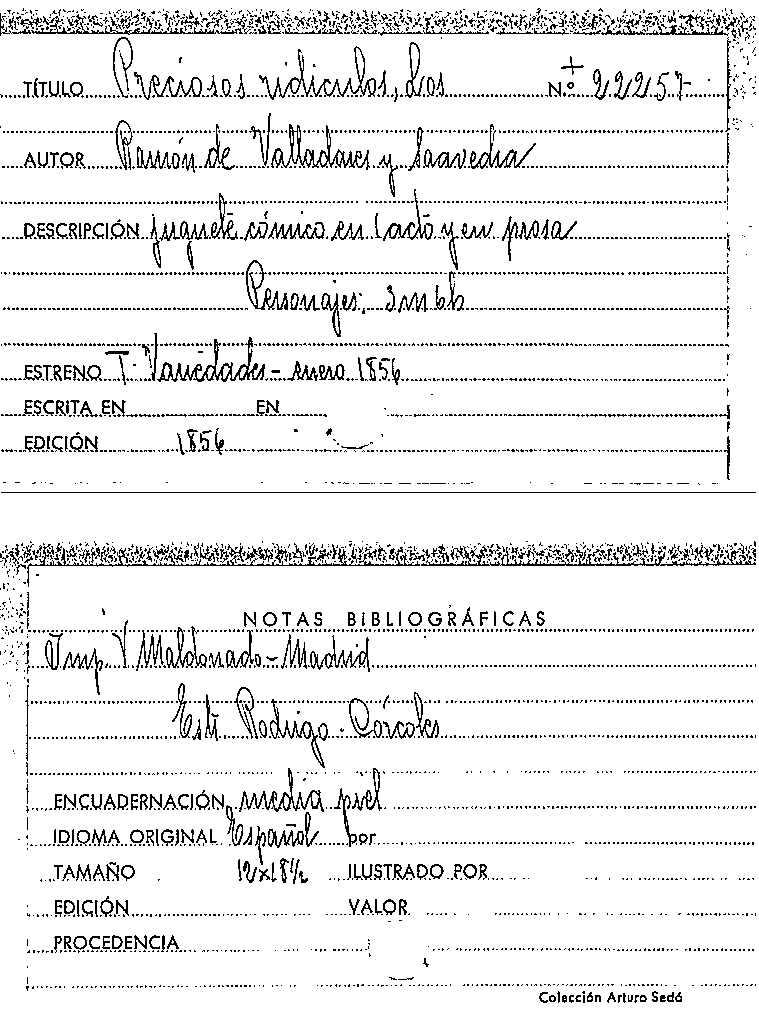 TÍTULO Preciosos ridiculos, Los N.º + 22257
AUTOR Ramón de Valladares y Saavedra
DESCRIPCIÓN juguete cómico en 1 acto y en prosa
Personajes: 3 m 6 h
ESTRENO T. Variedades - enero 1856
ESCRITA EN EN
EDICIÓN 1856
NOTAS BIBLIOGRÁFICAS
Imp. V Maldonado - Madrid
Rodrigo - Córcoles
ENCUADERNACIÓN media piel
IDIOMA ORIGINAL Español por
TAMAÑO 12x18½ ILUSTRADO POR
EDICIÓN VALOR
PROCEDENCIA
Colección Arturo Sedó